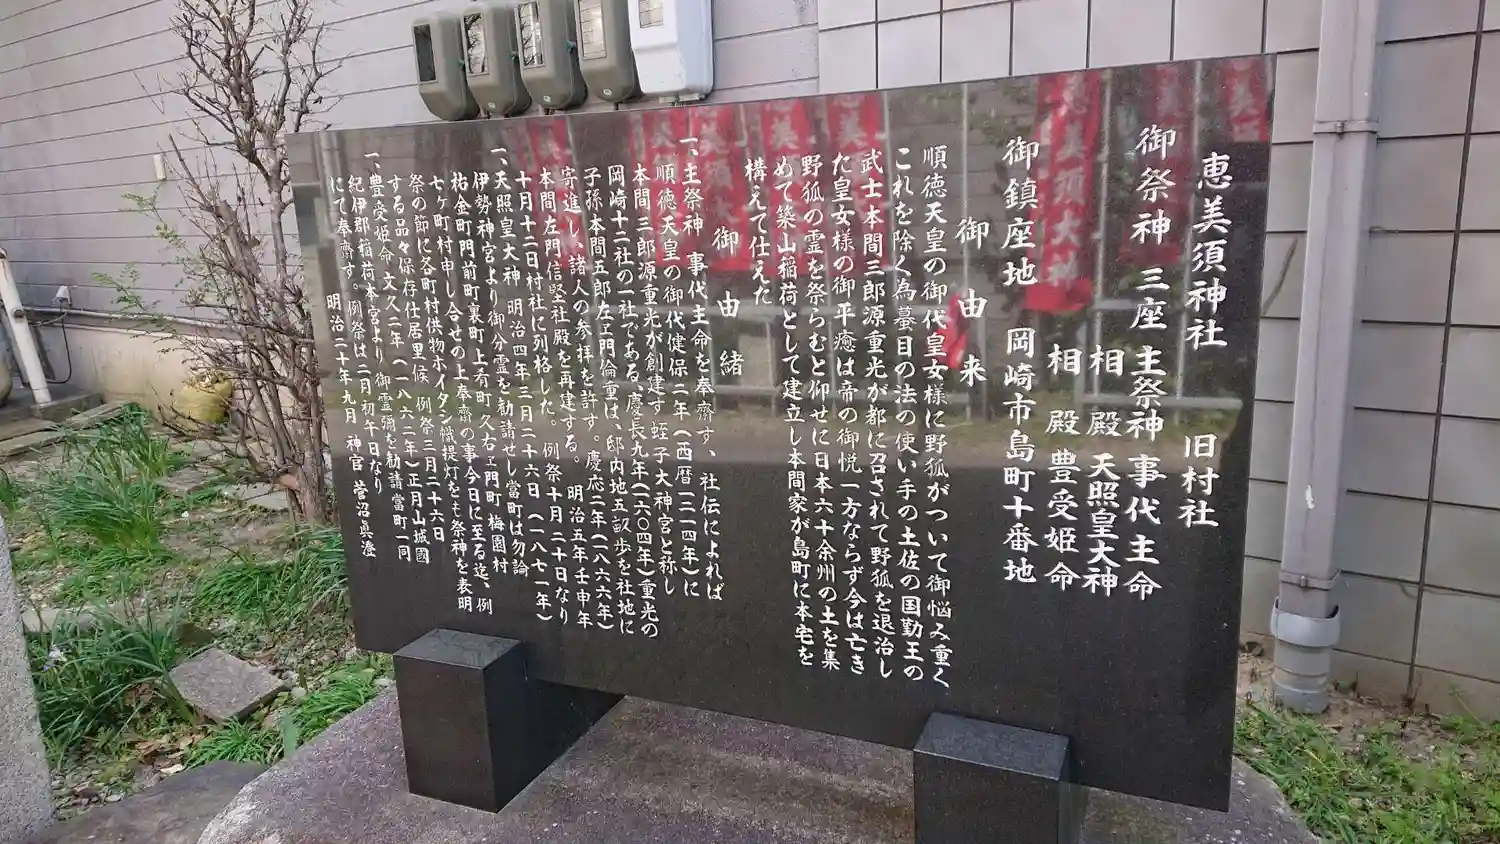 恵美須神社 旧村社
御祭神 三座 主祭神 事代主命
相殿 天照皇大神
相殿 豊受姫命
御鎮座地 岡崎市島町十番地
御由来
順徳天皇の御代皇女様に野狐がついて御悩み重く
これを除く為蟇目の法の使い手の土佐の国勤王の
武士本間三郎源重光が都に召されて野狐を退治し
た皇女様の御平癒は帝の御悦一方ならず今は亡き
野狐の霊を祭らむと仰せに日本六十余州の土を集
めて築山稲荷として建立し本間家が島町に本宅を
構えて仕えた
御由緒
一、主祭神 事代主命を奉齋す、社伝によれば
順徳天皇の御代健保二年(西暦一二一四年)に
本間三郎源重光が創建す蛭子大神宮と称し
岡崎十二社の一社である、慶長九年(一六〇四年)重光の
子孫本間五郎左ヱ門倫重は、邸内地五畝歩を社地に
寄進し、諸人の参拝を許す。慶応二年(一八六六年)
本間左門信堅社殿を再建する。 明治五年壬申年
十月十二日村社に列格した。例祭十月二十日なり
一、天照皇大神 明治四年三月二十六日(一八七一年)
伊勢神宮より御分霊を勧請せし當町は勿論
祐金町門前町裏町上肴町久右ヱ門町梅園村
七ヶ町村申し合せの上奉齋の事今日に至る迄、例
祭の節に各町村供物ホイタン幟提灯をも祭神を表明
する品々保存仕居里候 例祭三月二十六日
一、豊受姫命 文久二年(一八六二年)正月山城國
紀伊郡稲荷本宮より御霊璽を勧請當町一同
にて奉齋す。例祭は二月初午日なり
明治二十年九月 神官 菅沼眞澄
恵美須大神